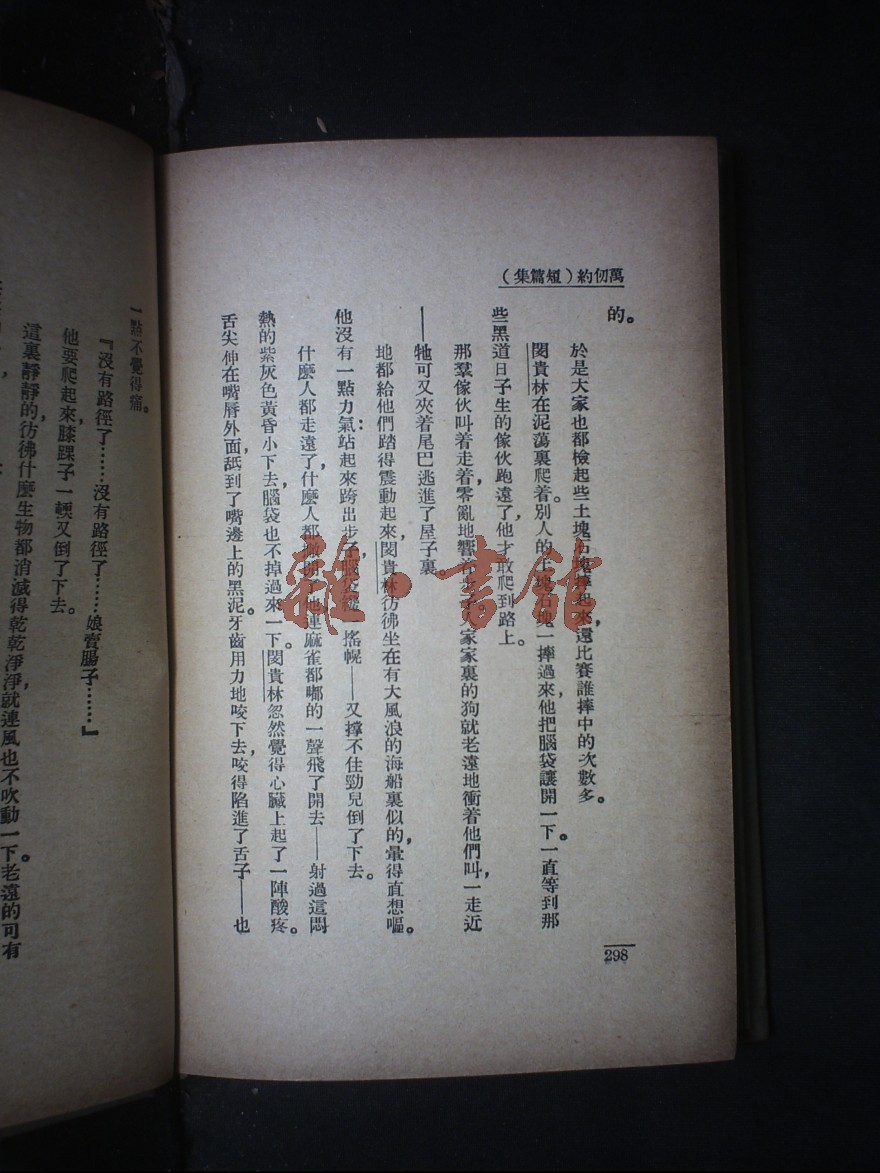 萬仞約（短篇集）
的。
於是大家也都檢起些土塊石塊摔起來，還比賽誰摔中的次數多。
閔貴林在泥蕩裏爬着。別人的土塊石塊一摔過來，他把腦袋讓開一下。一直等到那
些黑道日子生的傢伙跑遠了，他才敢爬到路上。
那羣傢伙叫着走着，零亂地響着步子。人家家裏的狗就老遠地衝着他們叫，一走近
——牠可又夾着尾巴逃進了屋子裏。
地都給他們踏得震動起來，閔貴林彷彿坐在有大風浪的海船裏似的，暈得直想嘔。
他沒有一點力氣站起來跨出步子，腦袋一搖幌——又撐不住勁兒倒了下去。
什麽人都走遠了，什麽人都撇開了他，連麻雀都嘟的一聲飛了開去——射過這悶
熱的紫灰色黃昏小下去，腦袋也不掉過來一下。閔貴林忽然覺得心臟上起了一陣酸疼。
舌尖伸在嘴唇外面，舐到了嘴邊上的黑泥。牙齒用力地咬下去，咬得陷進了舌子——也
298
一點不覺得痛。
『沒有路徑了……沒有路徑了……娘賣腸子……』
他要爬起來，膝踝子一輭又倒了下去。
這裏靜靜的，彷彿什麽生物都消滅得乾乾淨淨，就連風也不吹動一下。老遠的可有